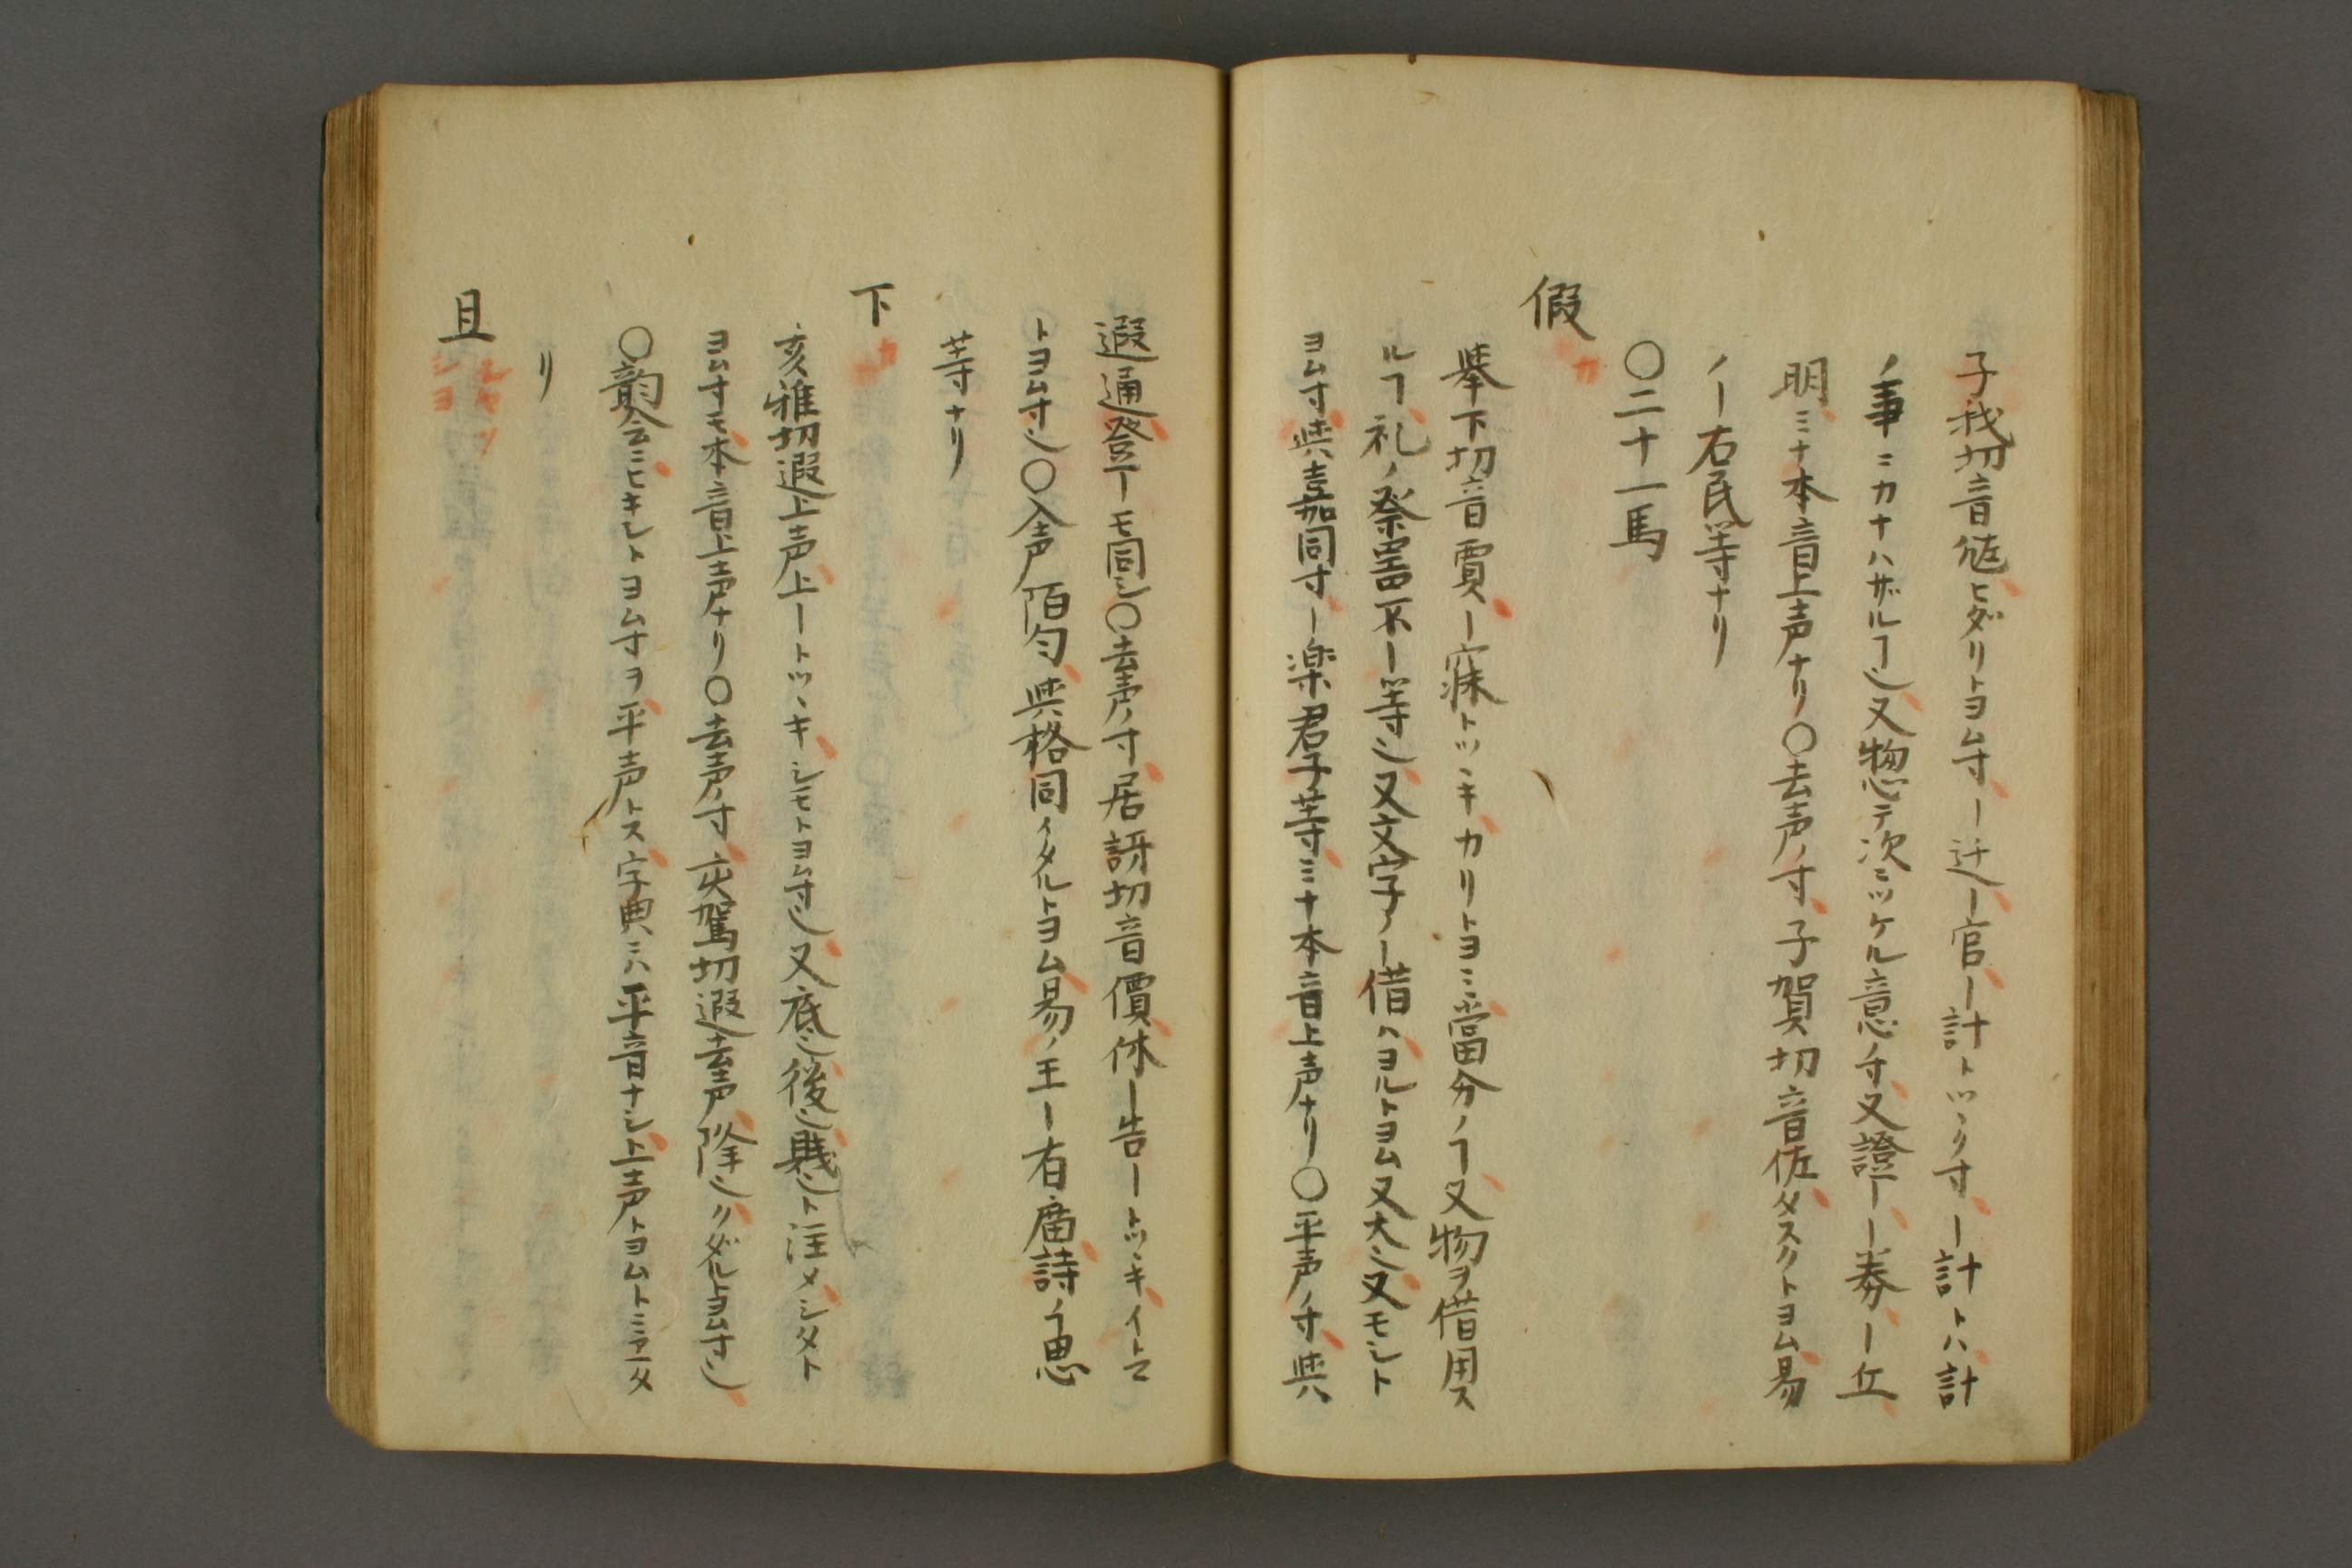 子我切音㔫ヒダリトヨム寸ー迁ー官ー計トツヽク寸ー計トハ計
ノ事ニカナハザルヿ也又惣テ次ニツケル意ノ寸又證ーー券ー丘
明ミナ本音上声ナリ〇去声ノ寸子賀切音佐タスクトヨム易
ノー右民等ナリ
〇二十一馬
假 カ
舉下切音賈ー寐トツヽキカリトヨミ當分ノヿ又物ヲ借用ス
ルヿ礼ノ祭噐不ー等也又文字ノー借ハヨルトヨム又大也又モシト
ヨム寸與嘉同寸ー楽君子等ミナ本音上声ナリ〇平声ノ寸與
遐通登ーモ同シ〇去声ノ寸居訝切音價休ー告ートツヽキイトマ
トヨム寸也〇入声陌匀與格同イタルトヨム易ノ王ー有廟詩ノ思
等ナリ
下 カ
亥雅切遐上声上ートツヽキシモトヨム寸也又底也後也賤也ト注メシタト
ヨム寸モ本音上声ナリ〇去声ノ寸亥駕切遐去声降也クダルトヨム寸也
〇韵会ニヒキシトヨム寸ヲ平声トス字典ニハ平音ナシ上声トヨムトミアニタ
リ
且 シヤ シヨ